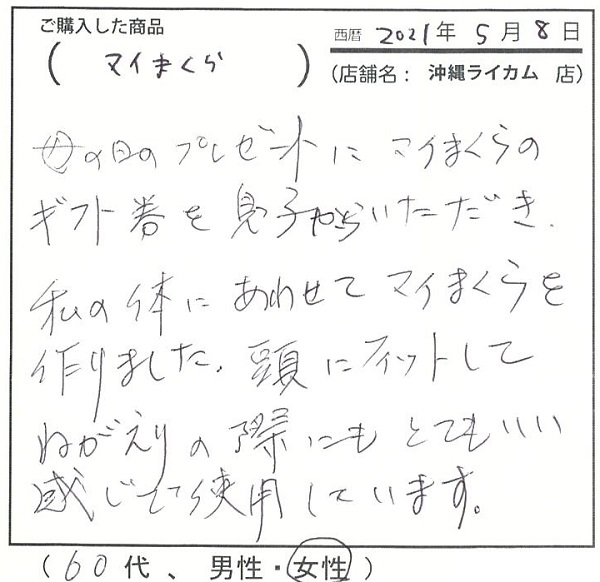 ご購入した商品
西暦 2021年 5月 8日
( マイまくら )
(店舗名: 沖縄ライカム 店)
母の日のプレゼントに マイまくらの
ギフト券を息子からいただき、
私の体に あわせて マイまくらを
作りました。頭にフィットして
ねがえりの際にも とてもいい
感じで使用しています。
(60代、男性・女性)